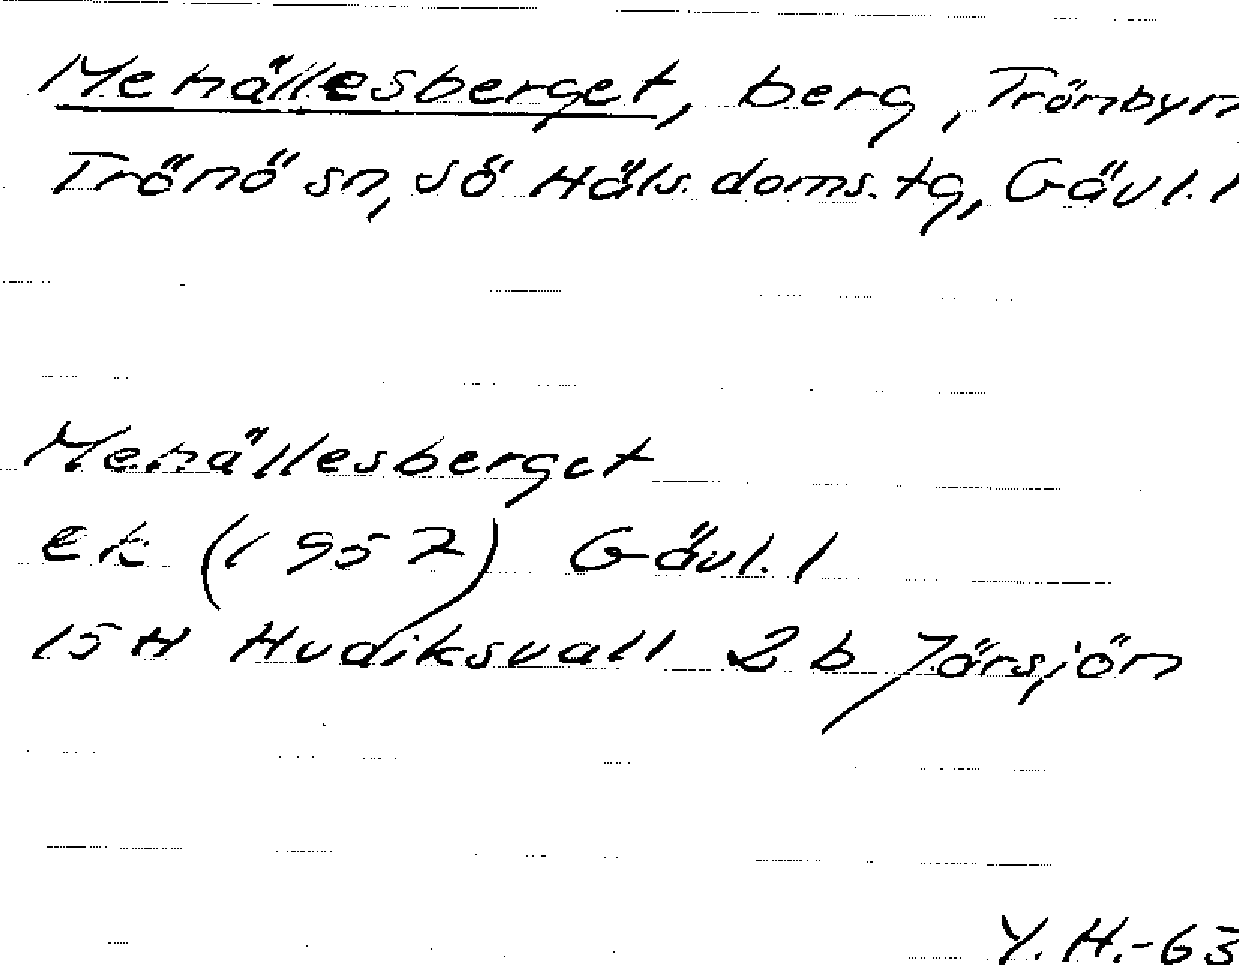 Mehällesberget, berg, Trönbyn
Trönö sn, sö Häls. doms. tg, Gävl. l
Mehällesberget
ek (1957) Gävl. l
15 H Hudiksvall 2 b Järsjön
Y. H. - 63